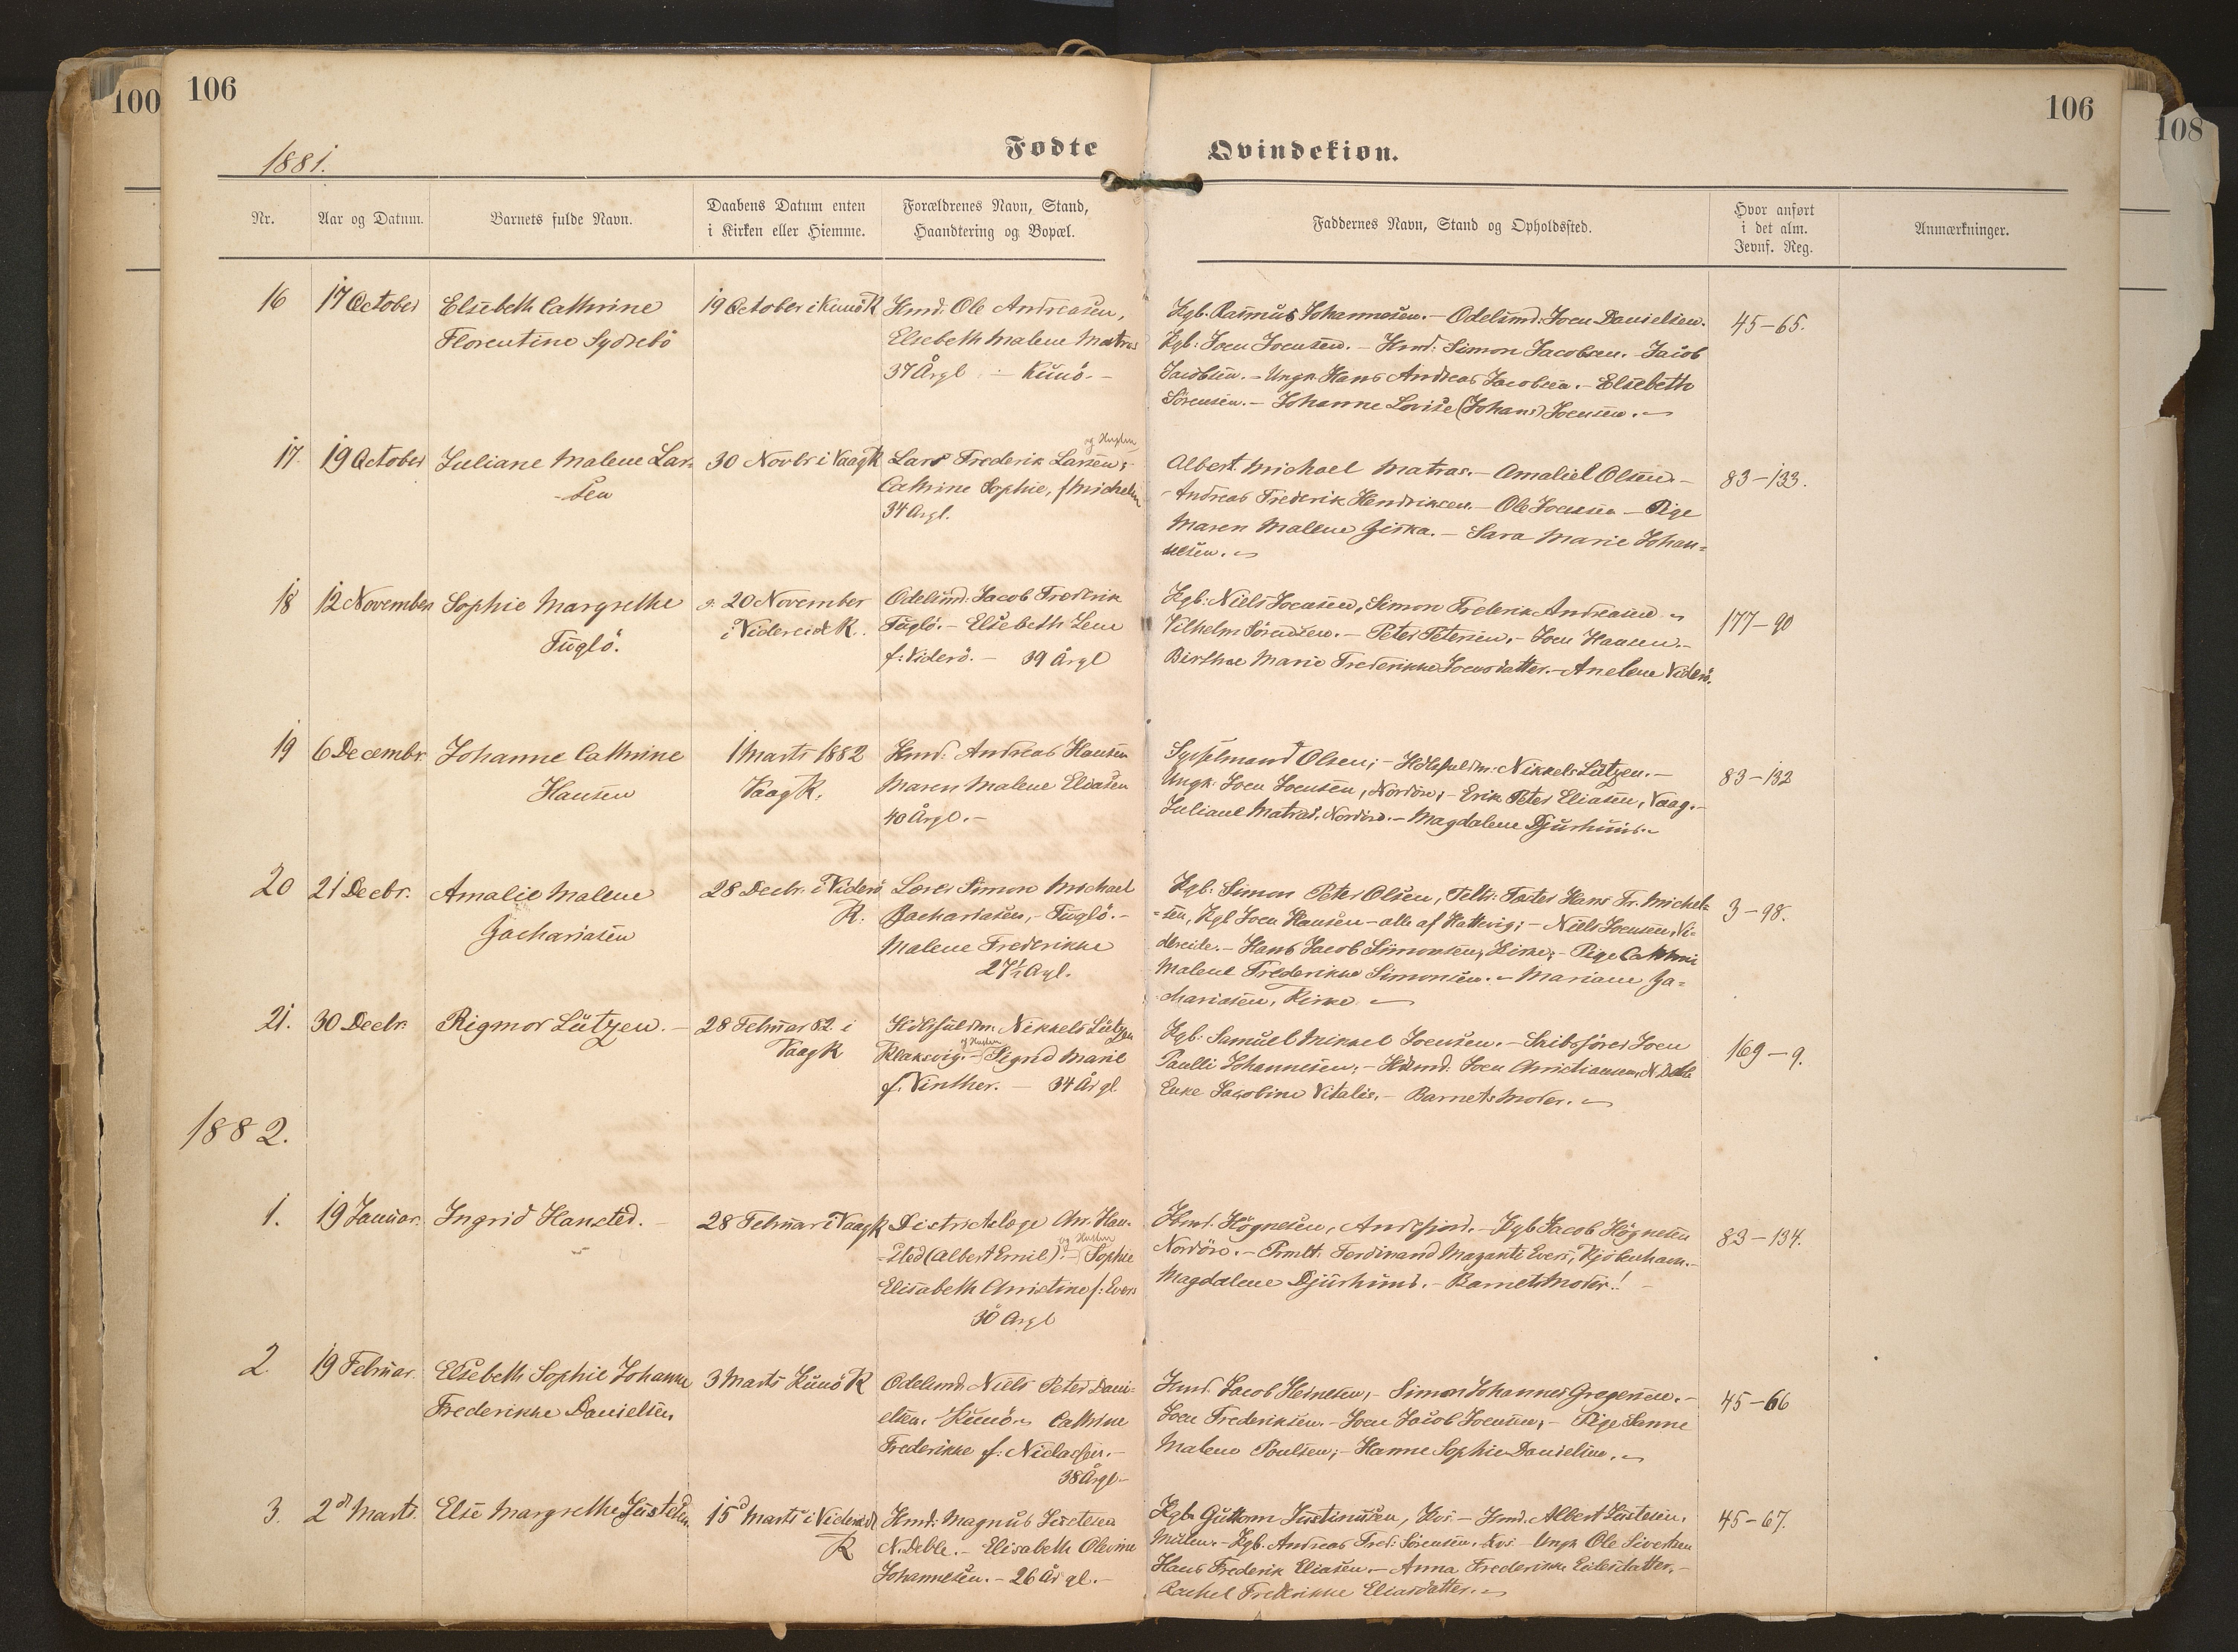 100
106
106
108
1881.
Fødte
Qvindekiøn.
Nr.
Aar og Datum.
Barnets fulde Navn.
Daabens Datum enten
i Kirken eller Hiemme.
Forældrenes Navn, Stand,
Haandtering og Bopæl.
Faddernes Navn, Stand og Opholdssted.
Hvor anført
i det alm.
Jevnf. Reg.
Anmærkninger.
16
17 October
Elsebeth Cathrine
Florentine Sydrebö
19 October i Kunö K
Hmd. Ole Andreasen,
Elsebeth Malene Matras
37 Årgl - Kunö. -
Kgb. Rasmus Johannesen. - Odelsmd. Joen Danielsen.
Kgb: Joen Joensen. - Hmd: Simon Jacobsen. - Jacob
Jacobsen. - Ungk. Hans Andreas Jacobsen. - Elsebeth
Sörensen. - Johanne Lovise (Johans) Joensen. -
45-65.
17.
19 October
Juliane Malene Lar-
-sen
30 Novbr i Vaag K
og Hustru
Lars Frederik Larsen;
Cathrine Sophie, f Michelsen
34 Årgl.
Albert Michael Matras. - Amaliel Olsen. -
- Andreas Frederik Hendriksen. - Ole Joensen - Pige
Maren Malene Ziska. - Sara Marie Johan=
nesen.
83-133.
18
12 November
Sophie Margrethe
Fuglö.
20 November
i Videreide K.
Odelsmd. Jacob Frederik
Fuglö. - Elsebeth Lene
f. Viderö. - 39 Årgl
Kgb: Niels Joensen, Simon Frederik Andreasen
Vilhelm Sörensen. - Peter Petersen. - Joen Hansen. -
Birthe Marie Frederikke Joensdatter. - Anelene Viderö.
177-90
19
6 Decembr.
Johanne Cathrine
Hansen
1 Marts 1882
Vaag K.
Hmd. Andreas Hansen
Maren Malene Eliasen
40 Årgl. -
Sysselmand Olsen; - Hdlsfuldm: Nikkels Lützen. -
Ungk. Joen Joensen, Nordöre; - Erik Peter Eliasen, Vaag. -
Juliane Matras, Nordöre. - Magdalene Djurhuus. -
83-132
20
21 Decbr.
Amalie Malene
Zachariasen
28 Decbr. i Viderö
K.
Lærer Simon Michael
Zachariasen, - Fuglö. -
Malene Frederikke
27½ Agl.
Kgb: Simon Peter Olsen, Hans Fr. Michel=
=sen, Kgl Joen Hansen - alle af Hattervig; - Niels Joensen, Vi-
dereide. - Hans Jacob Simonsen, Kirke; - Pige Cathrine
Malene Frederikke Simonsen. - Mariane Za=
chariasen, Kirke -
3-98.
21.
30 Decbr.
Rigmor Lützen. -
28 Februar 82 i
Vaag K
Hdlsfuldm. Nikkels Lützen
og Hustru
Klaksvig. - Sigrid Marie
f. Vinther. - 34 År gl.
Kgb: Samuel Mikkel Joensen. - Skibsförer Joen
Paulli Johannesen; - Hdsmd. Joen Christiansen, N. Deble
Enke Jacobine Vitalis. - Barnets Moder. -
169-9.
1882.
1.
19 Januar.
Ingrid Hansted. -
28 Februar i Vaag K
Districtslæge Chr. Han-
og Hustru
-sted (Albert Emil). - Sophie
Elisabeth Christine f: Evers
30 Årgl
Hmd. Högnesen, Andefjord. - Kgb Jacob Högnesen
Nordöre. - Prmlt. Ferdinand Mazanti Evers, Kjöbenhavn. -
Magdalene Djurhuus. - Barnets Moder.! -
83-134.
2
19 Februar.
Elsebeth Sophie Johanne
Frederikke Danielsen
3 Marts Kunö K
Odelsmd. Niels Peter Dani-
elsen. - Kunö. Cathrine
Frederikke f: Niclassen. -
38 Årgl. -
Hmd. Jacob Heinesen, - Simon Johannes Gregersen. -
Joen Frederiksen. - Joen Jacob Joensen; - Pige Sanne
Malene Poulsen; - Hanne Sophie Danielsen. -
45-66
3.
2d Marts.
Else Margrethe Justesen
15d Marts i Videreide
K
Hmd: Magnus Justesen
N. Deble. - Elisabeth Olevine
Johannesen. - 26 År gl. -
Kgb. Guttorm Justinussen, Kvs. - Hmd. Albert Justesen,
Mülen. - Kgb. Andreas Fred: Sörensen, Kvs - Ungk Ole Sivertsen
Hans Frederik Eliasen. - Anna Frederikke Eilersdatter. -
Rachel Frederikke Eliasdatter. -
45-67.